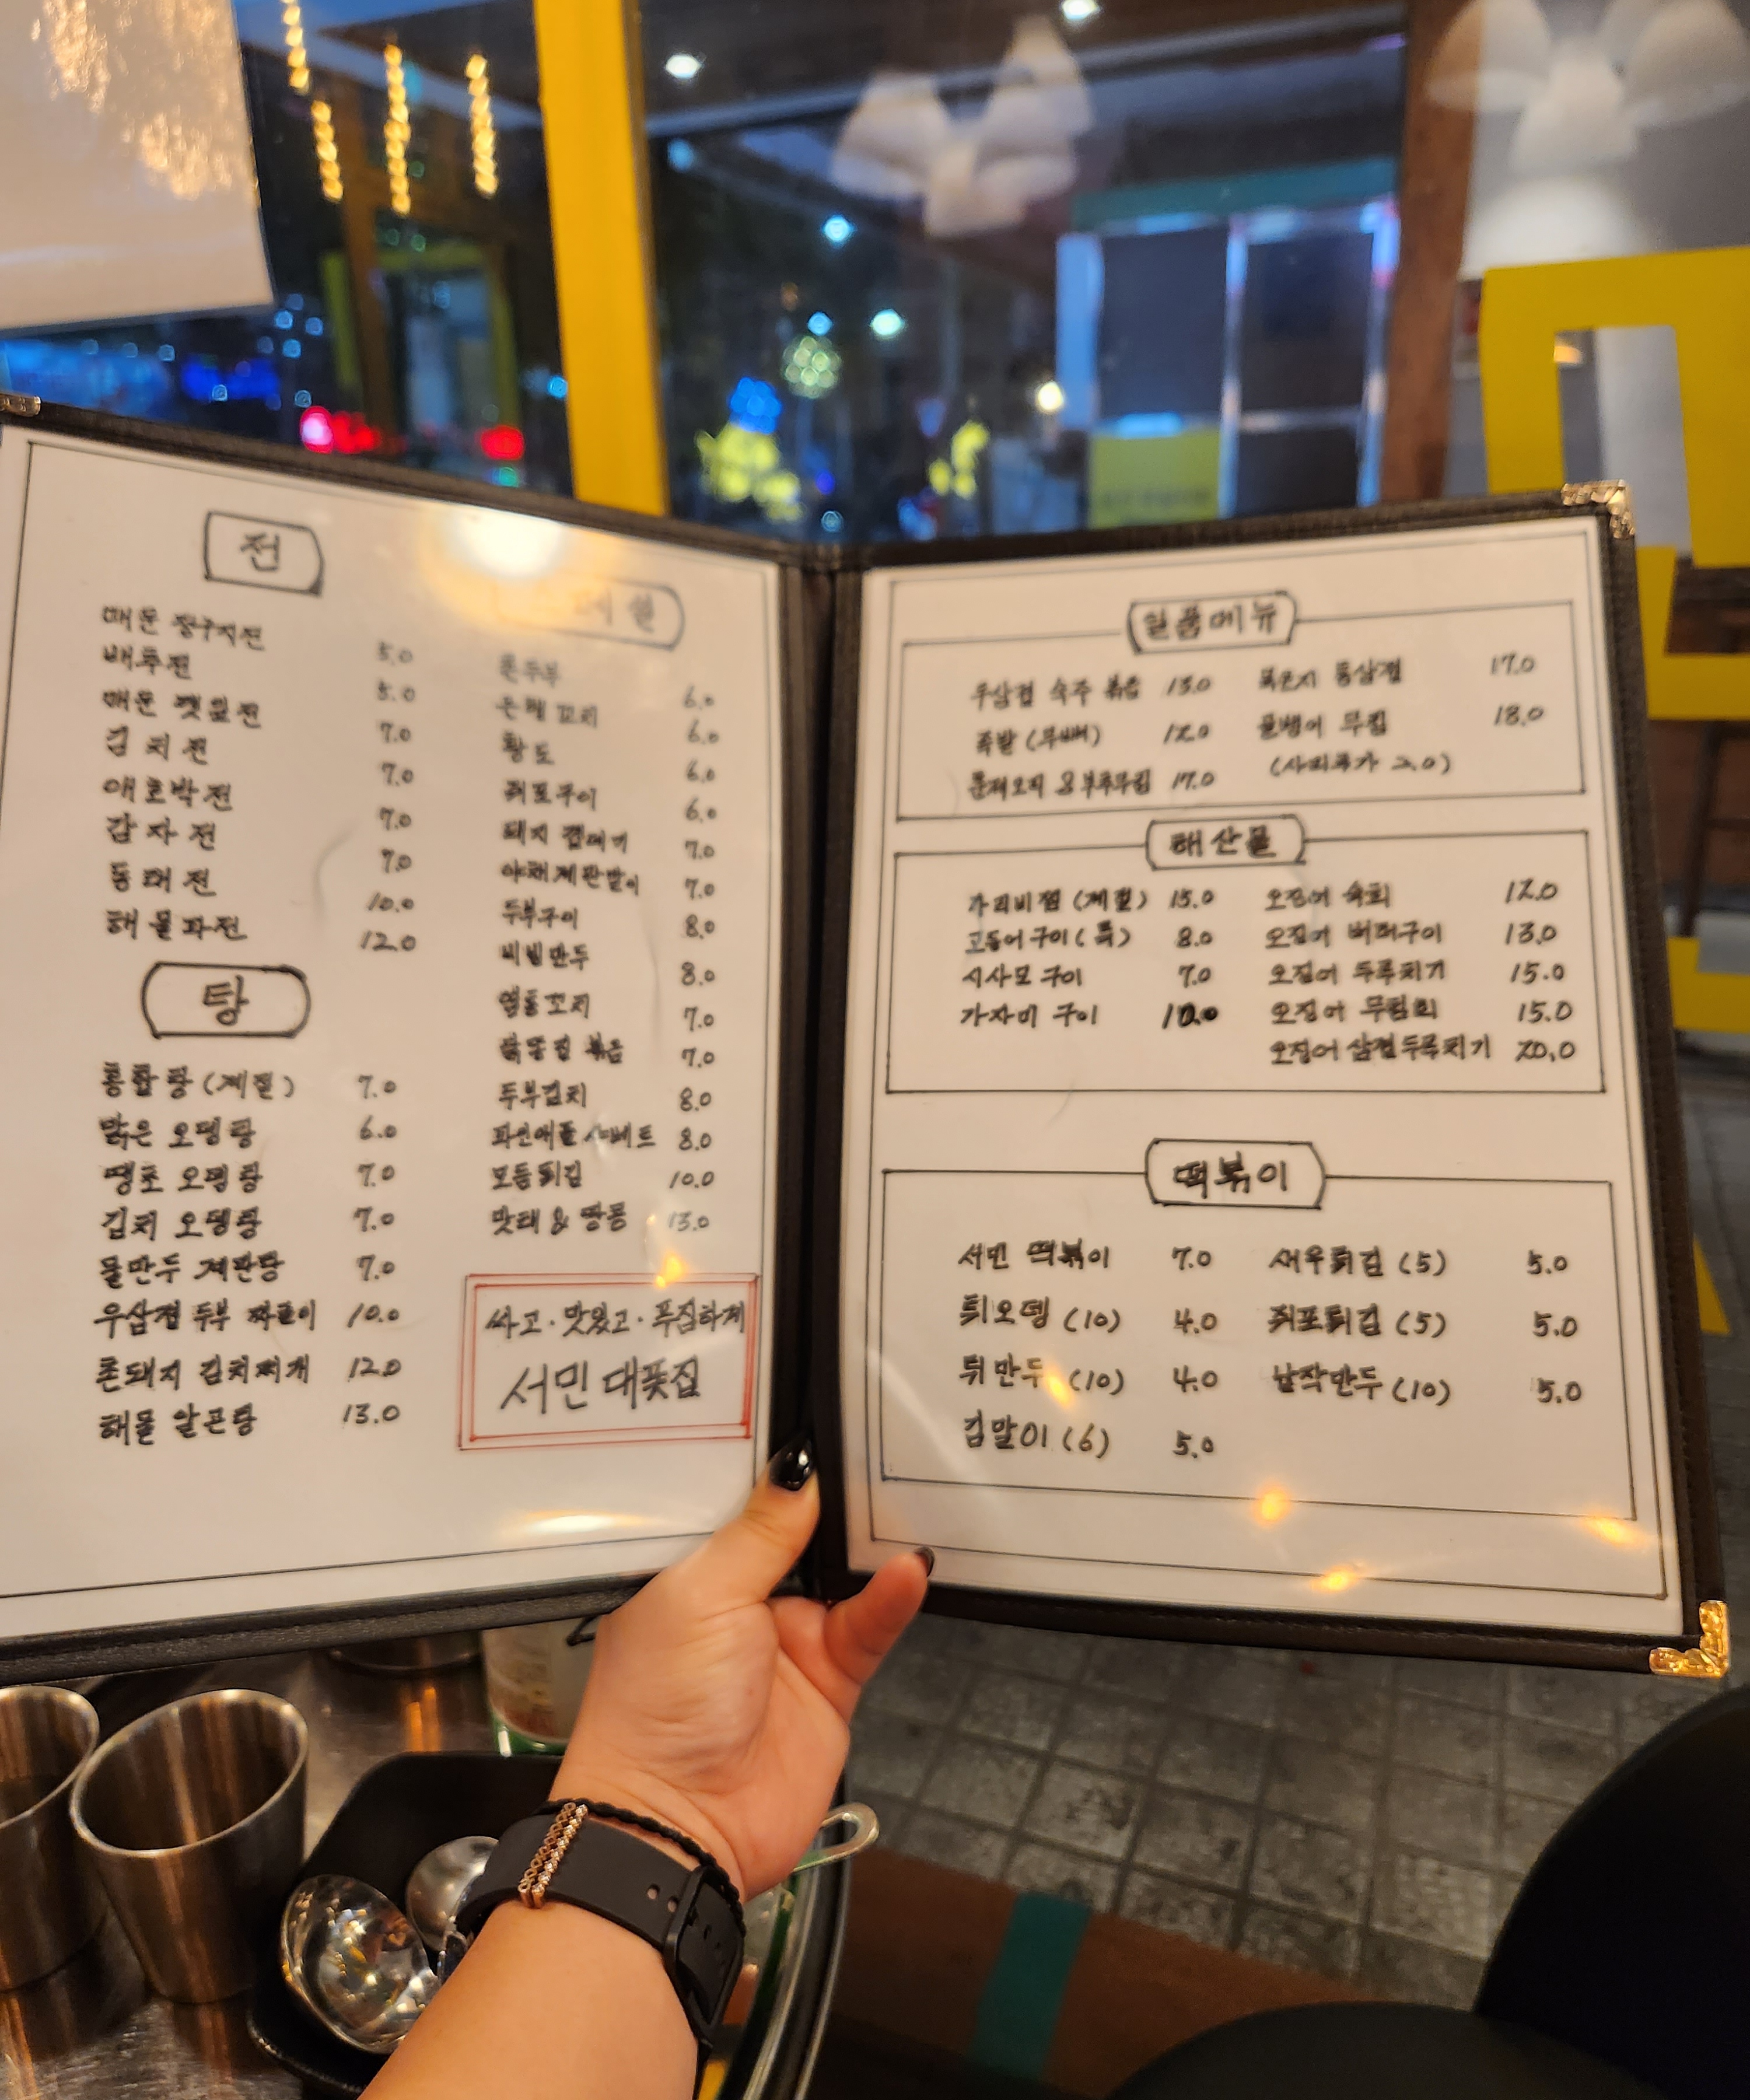 전
매운 정구지전 5.0
배추전 5.0
매운 깻잎전 7.0
김치전 7.0
애호박전 7.0
감자전 7.0
동태전 10.0
해물파전 12.0
탕
홍합탕 (계절) 7.0
맑은 오뎅탕 6.0
땡초 오뎅탕 7.0
김치 오뎅탕 7.0
물만두 계란탕 7.0
우삼겹 두부 짜글이 10.0
촌돼지 김치찌개 12.0
해물 알곤탕 13.0
촌두부 6.0
6.0
황도 6.0
쥐포구이 6.0
돼지 껍데기 7.0
야채계란말이 7.0
두부구이 8.0
비빔만두 8.0
염통꼬지 7.0
닭똥집 볶음 7.0
두부김치 8.0
파인애플 샤베트 8.0
모듬튀김 10.0
먹태 & 땅콩 13.0
싸고·맛있고·푸짐하게
서민 대폿집
일품메뉴
우삼겹 숙주 볶음 13.0
족발 (무뼈) 12.0
훈제오리 & 부추무침 17.0
묵은지 통삼겹 17.0
골뱅이 무침 18.0
(사리추가 2.0)
해산물
가리비찜 (계절) 15.0
고등어 구이 (특) 8.0
시사모 구이 7.0
가자미 구이 12.0
오징어 숙회 12.0
오징어 버터구이 13.0
오징어 두루치기 15.0
오징어 무침회 15.0
오징어 삼겹두루치기 20.0
떡볶이
서민 떡볶이 7.0
튀오뎅 (10) 4.0
튀만두 (10) 4.0
김말이 (6) 5.0
새우튀김 (5) 5.0
쥐포튀김 (5) 5.0
납작만두 (10) 5.0